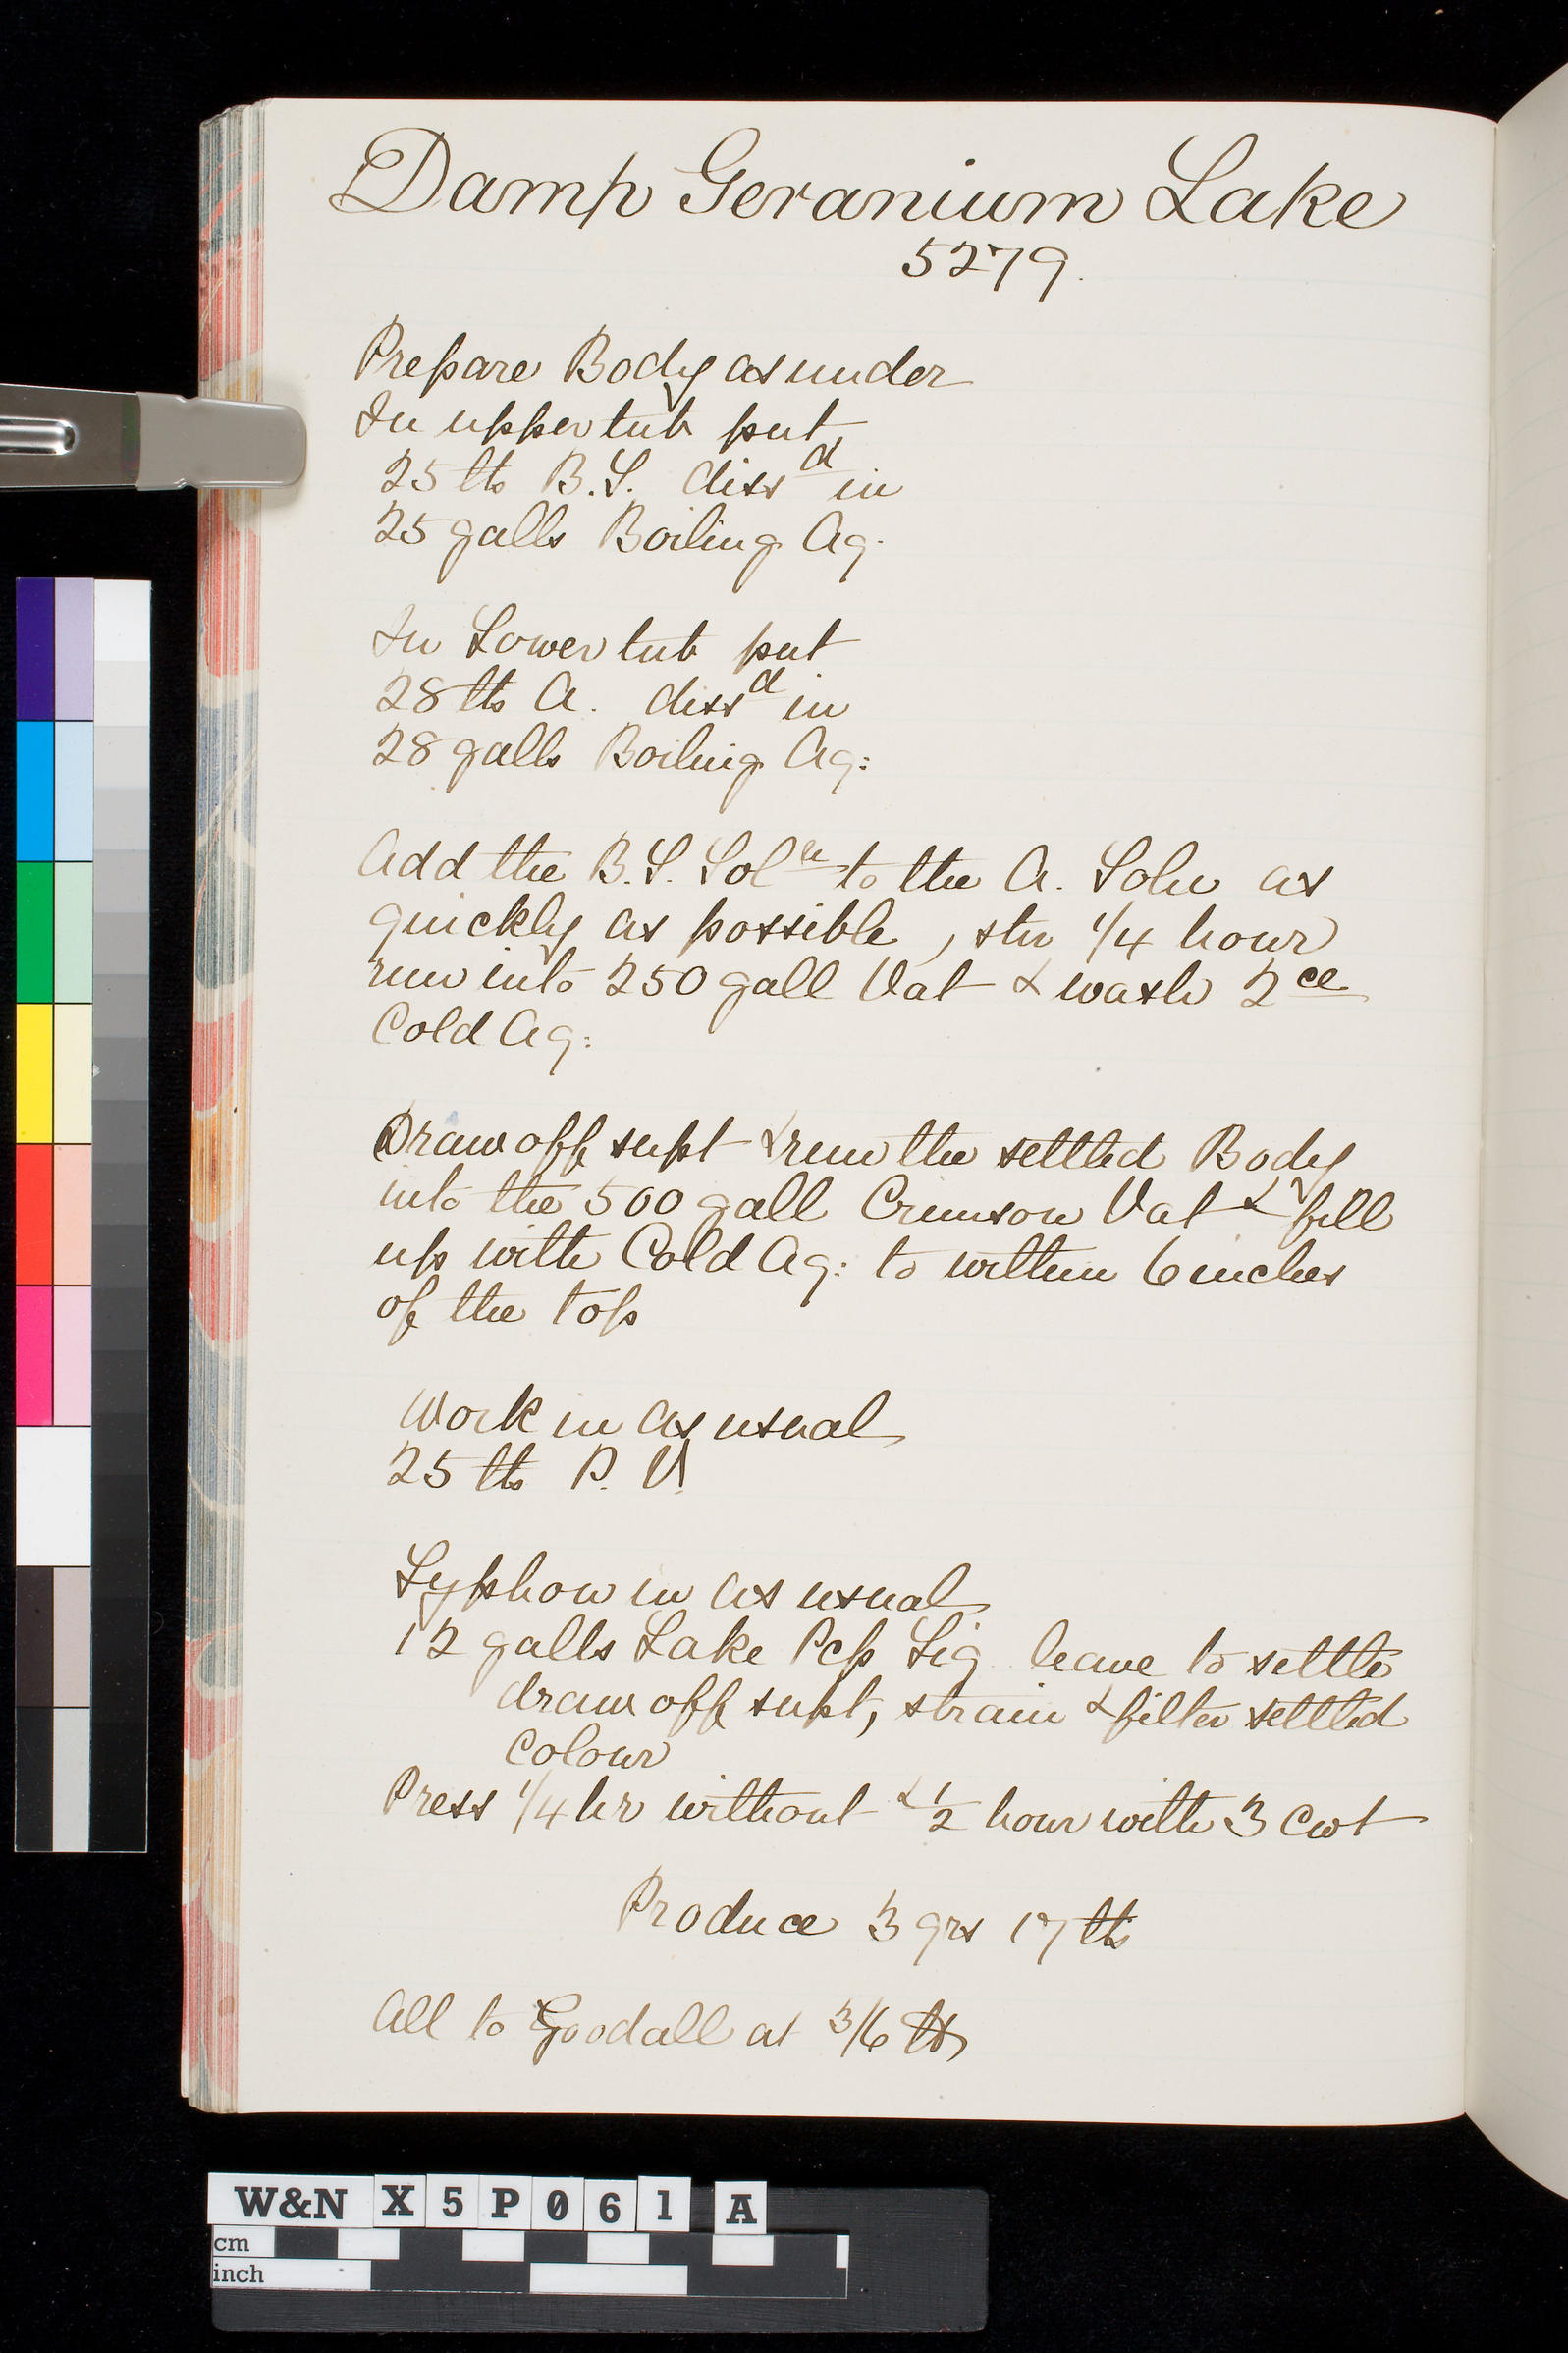 Damp Geranium Lake
5279.
Prepare Body as under
In upper tub put
25 lbs B.S. dissd in
25 galls Boiling Aq.
In Lower tub put
28 lbs A. dissd in
28 galls Boiling Aq:
Add the B.S. Soln to the A. Soln as
quickly as possible, stir 1/4 hour
run into 250 gall Vat & wash 2ce
Cold Aq:
Draw off supt & run the settled Body
into the 500 gall Crimson Vat & fill
up with Cold Aq: to within 6 inches
of the top
Work in as usual
25 lbs P.
Syphon in as usual
12 galls Lake Pcp Liq leave to settle
draw off supt, strain & filter settled
Colour
Press 1/4 hr without & 1/2 hour with 3 Cwt
Produce 3 qrs 17 lbs
All to Goodall at 3/6 lb
W&N X5P061 A
cm
inch